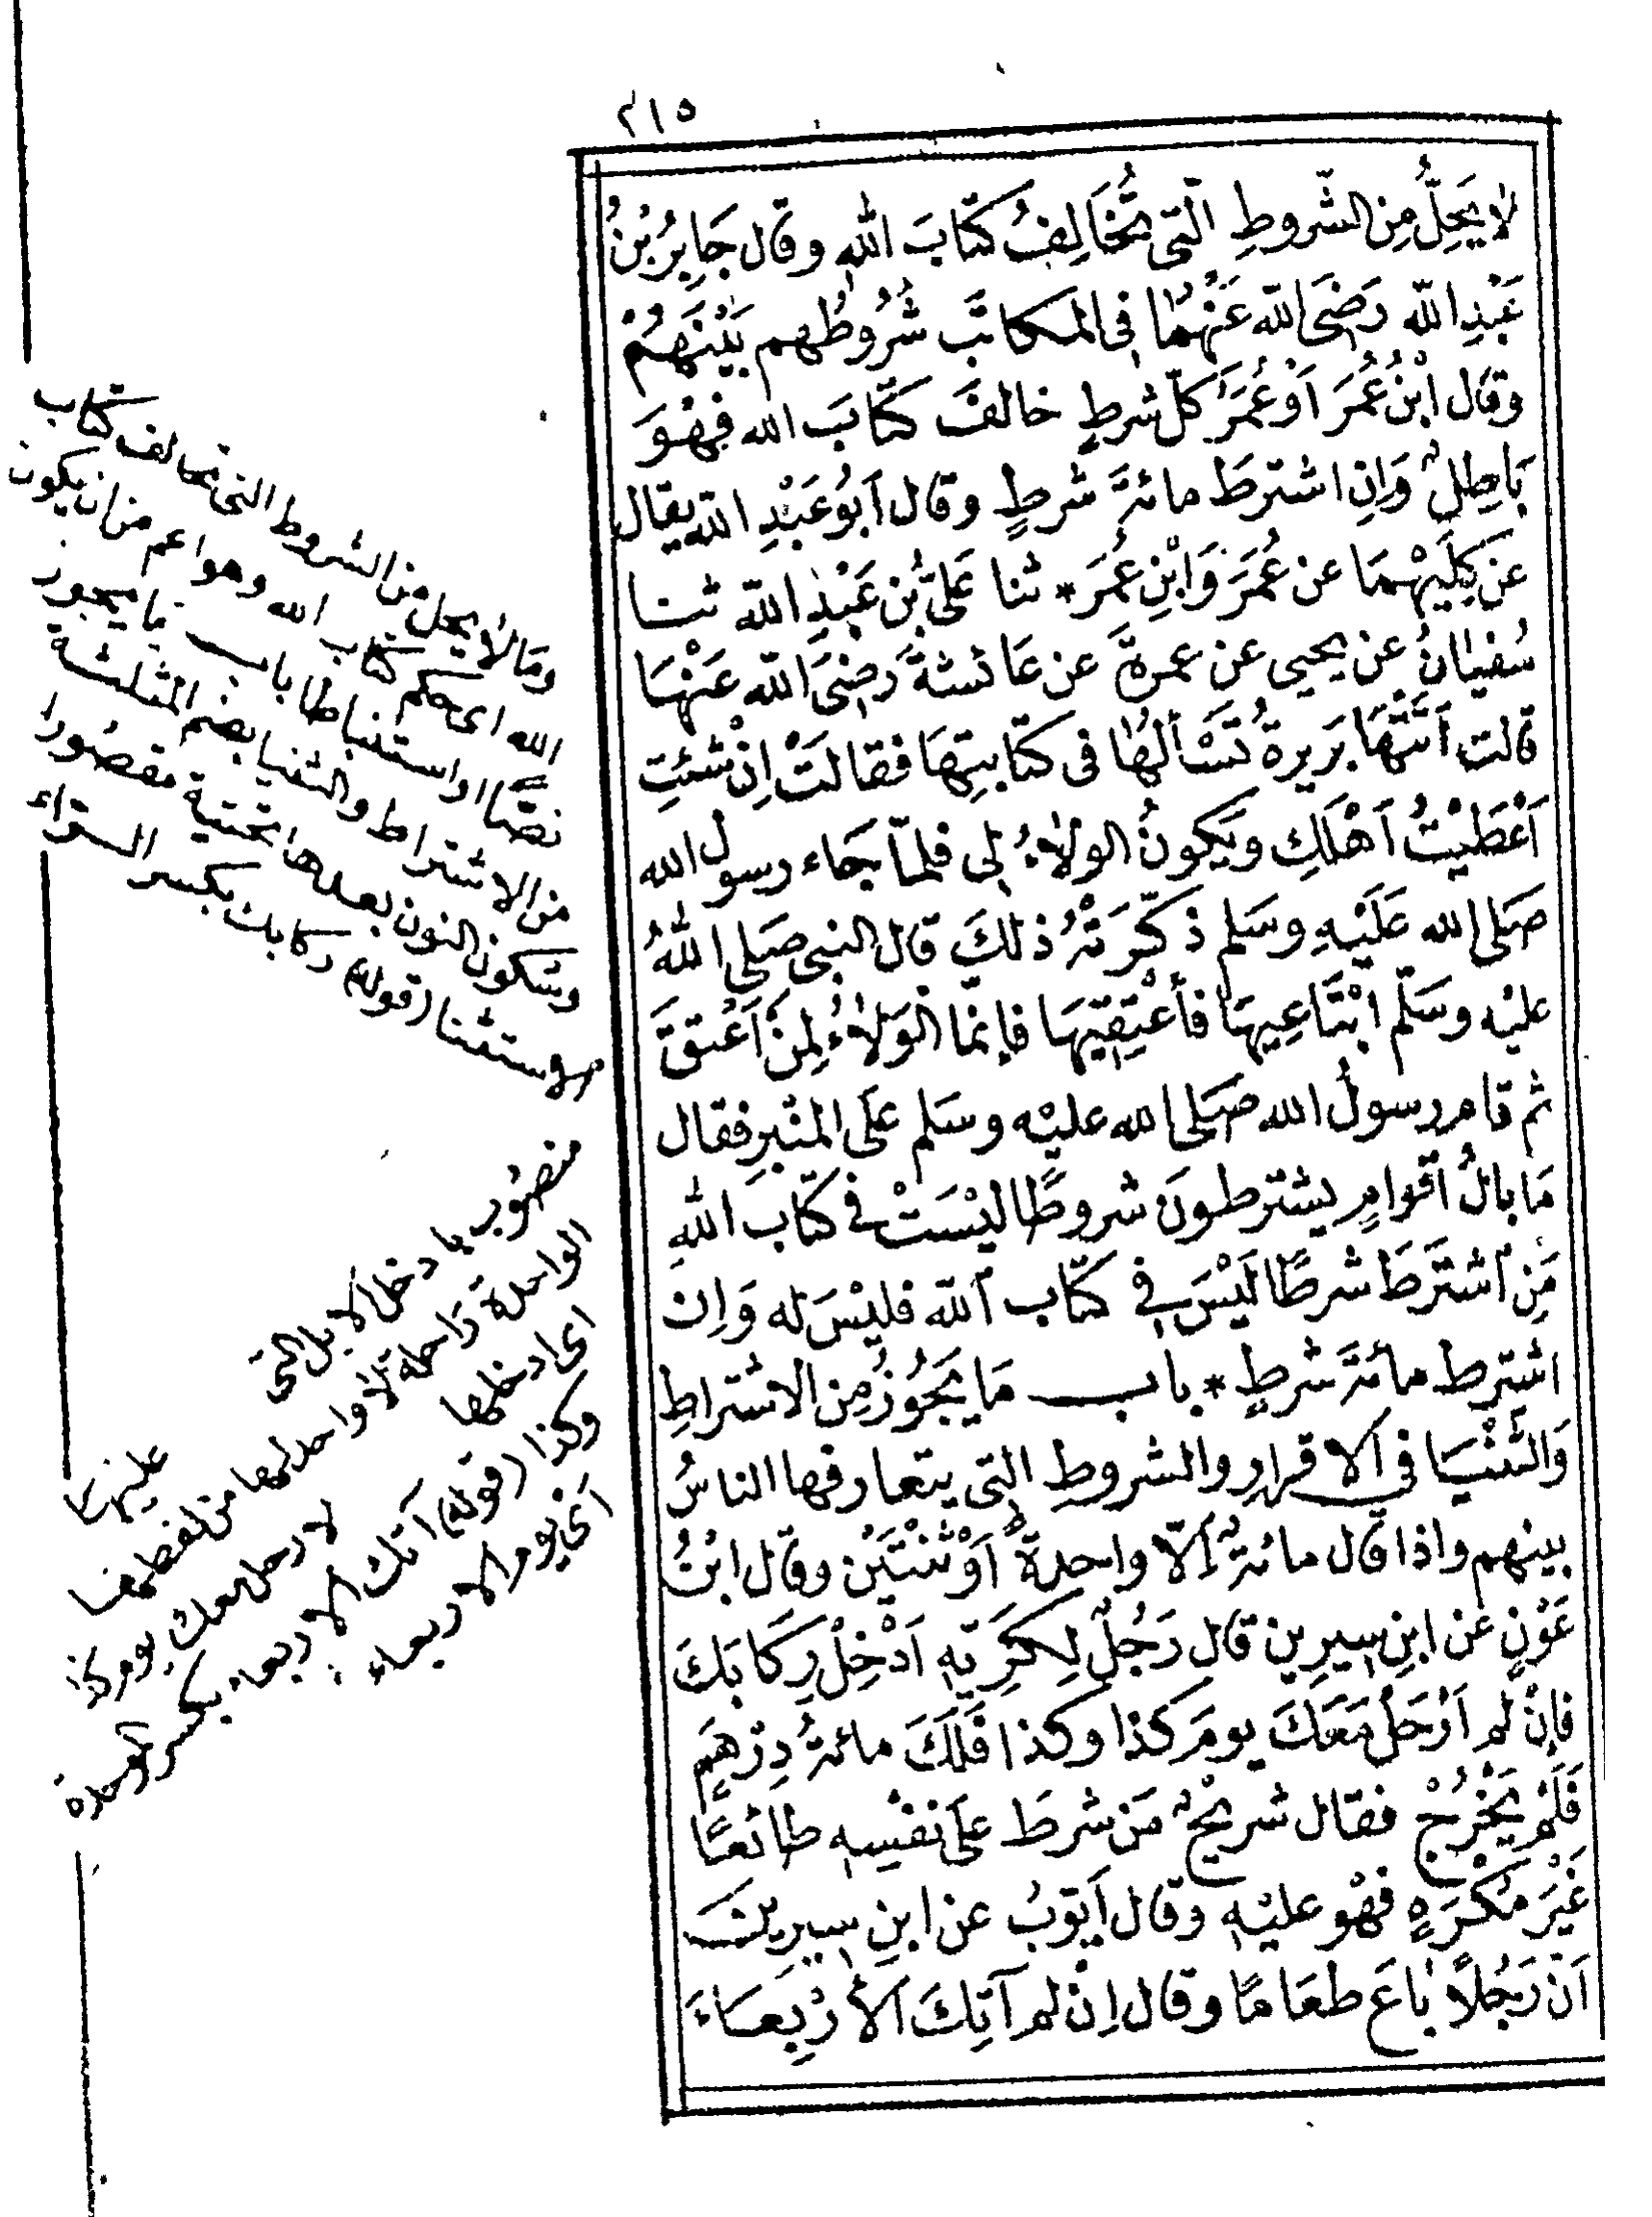 ٢١٥
لا يَحِلُّ مِن الشّروطِ الّتى تُخَالِفُ كتَابَ اللهِ وقال جَابِرُ بْنُ
عَبْدِ اللّه رَضِىَ اللّه عَنْهُمَا فى المكاتَب شُرُوطُهم بَيْنَهُمْ
وقال ابْنُ عُمَرَ اَوْ عُمَرُ كلّ شرطٍ خالفَ كتَابَ الله فهُوَ
بَاطِلٌ وَاِنِ اشترطَ مائةَ شرطٍ وقال اَبُو عَبْدِ اللّه يقال
عَن كِلَيْهِمَا عن عُمَرَ وَابْنِ عُمَرَ * ثنا عَلىُّ بْن عَبْدِ اللّه ثنا
سُفيٰانُ عن يحيى عن عمرةَ عن عَائشةَ رَضِىَ اللّه عَنْهَا
قالت اَتَتْهَا بَرِيرةُ تَسْألُهٰا فى كتَابتِهَا فقالَتْ اِنْ شئتِ
اَعْطَيْتُ اَهْلَكِ ويَكونُ الولاٰءُ لِى فلمّا جَاء رسولُ الله
صَلى الله عَلَيْهِ وسَلم ذكّرَتْهُ ذلكَ قال النبى صَلى اللهُ
عليْه وسَلّم ابْتَاعِيهَا فأعْتِقِيهَا فإنمّا الوَلاٰءُ لِمنْ اَعْتقَ
ثم قام رسولُ الله صَلى الله عليْه وسَلم عَلَى المنْبَرِ فقال
مَا بالُ اَقوامٍ يشترطونَ شروطًا ليْسَتْ فى كتَاب اللهِ
مَنِ اشتَرَطَ شرطًا لَيْسَ فى كتَاب اللّه فليْسَ له وَاِن
اشترط مائةَ شرطٍ * باب مَا يَجُوزُ مِن الاشتراطِ
وَالثُّنْيَا فى الاقرارِ والشروطِ التى يتعارفها الناسُ
بينهم واذا قال مائةٌ اِلّا واحدةً اَوْ ثنْتَيْن وقال ابْنُ
عَوْنٍ عن ابنِ سِيرِين قال رَجُلٌ لِكَرِيّهِ اَدْخِلْ رِكَابَكَ
فاِنْ لم اَرْحَلْ مَعَكَ يومَ كذا وكذا فَلَكَ مائةُ دِرْهَمٍ
فَلَمْ يَخْرُجْ فقال شريْحٌ مَن شرطَ على نفْسِهِ طائعًا
غَيْرَ مُكْرَهٍ فهْو عليْهِ وقال اَيّوبُ عن ابنِ سِيرِينَ
اَنّ رَجُلاً بٰاعَ طعَامًا وقال اِنْ لم آتِكَ الاَرْبِعَاءَ
ومَا لا يحل من الشروط التى تخالف كتاب
الله اى حكم كتاب الله وهو اعم من ان يكون
نصًّا او استنباطا باب ما يجوز
من الاشتراط والثنيا بضم المثلثة
وسكون النون بعدها تحتية مقصورا
الاستثنا (قوله) ركابك بكسر الراء
منصُوب با دخل الابل التى
الواحدة رَاحلة لا واحد لها من لفظها
اى ادخلها
عليها
لارحل معك يوم كذا
وكذا (قوله) آتك الاربعاء بكسر الموحدة
اَى يوم الاربعاء